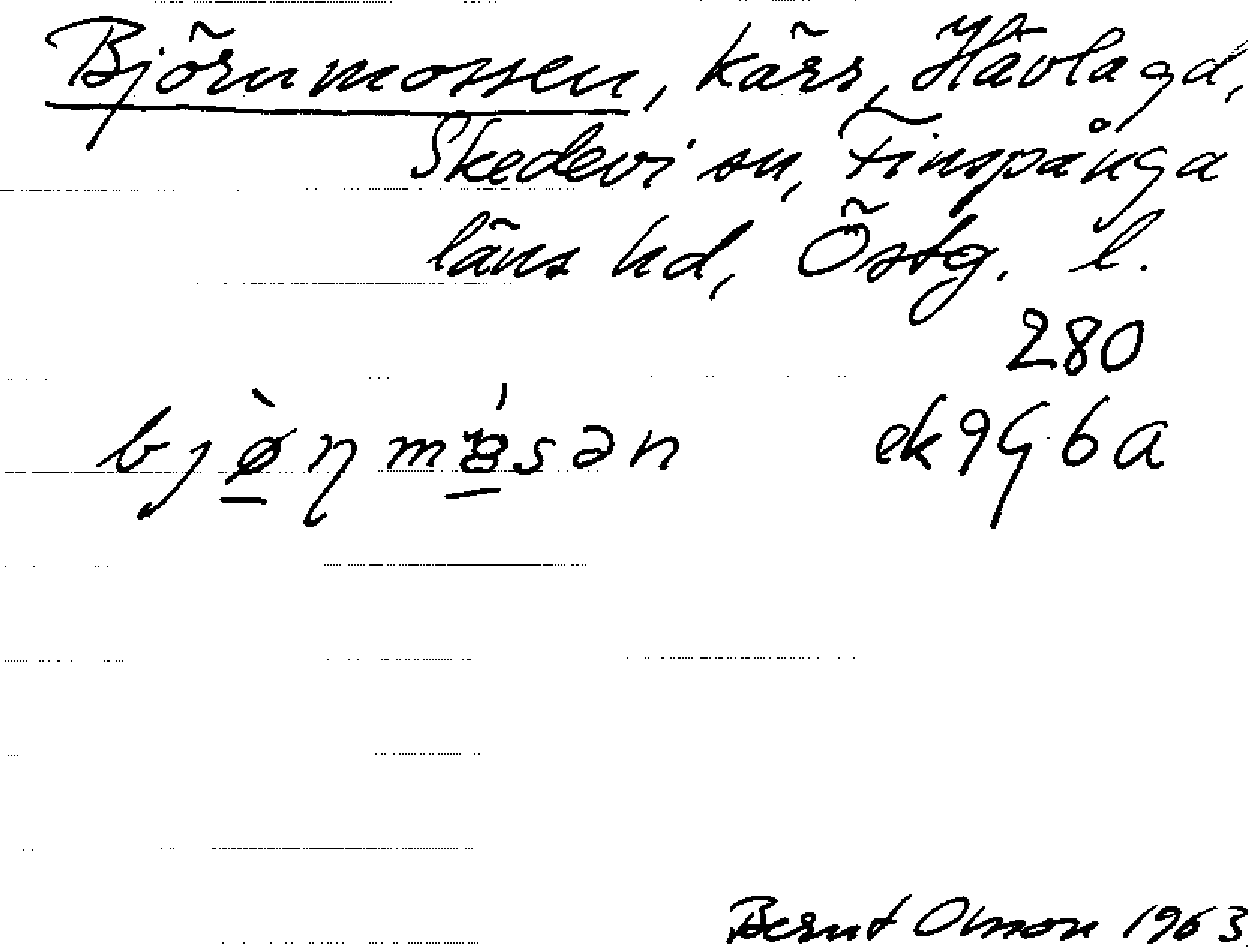 Björnmossen, kärr, Hävla gd,
Skedevi sn, Finspånga
läns hd, Östg. l.
280
bjø̀ɳmɞ́sən ek 9G 6a
Bernt Olsson 1963